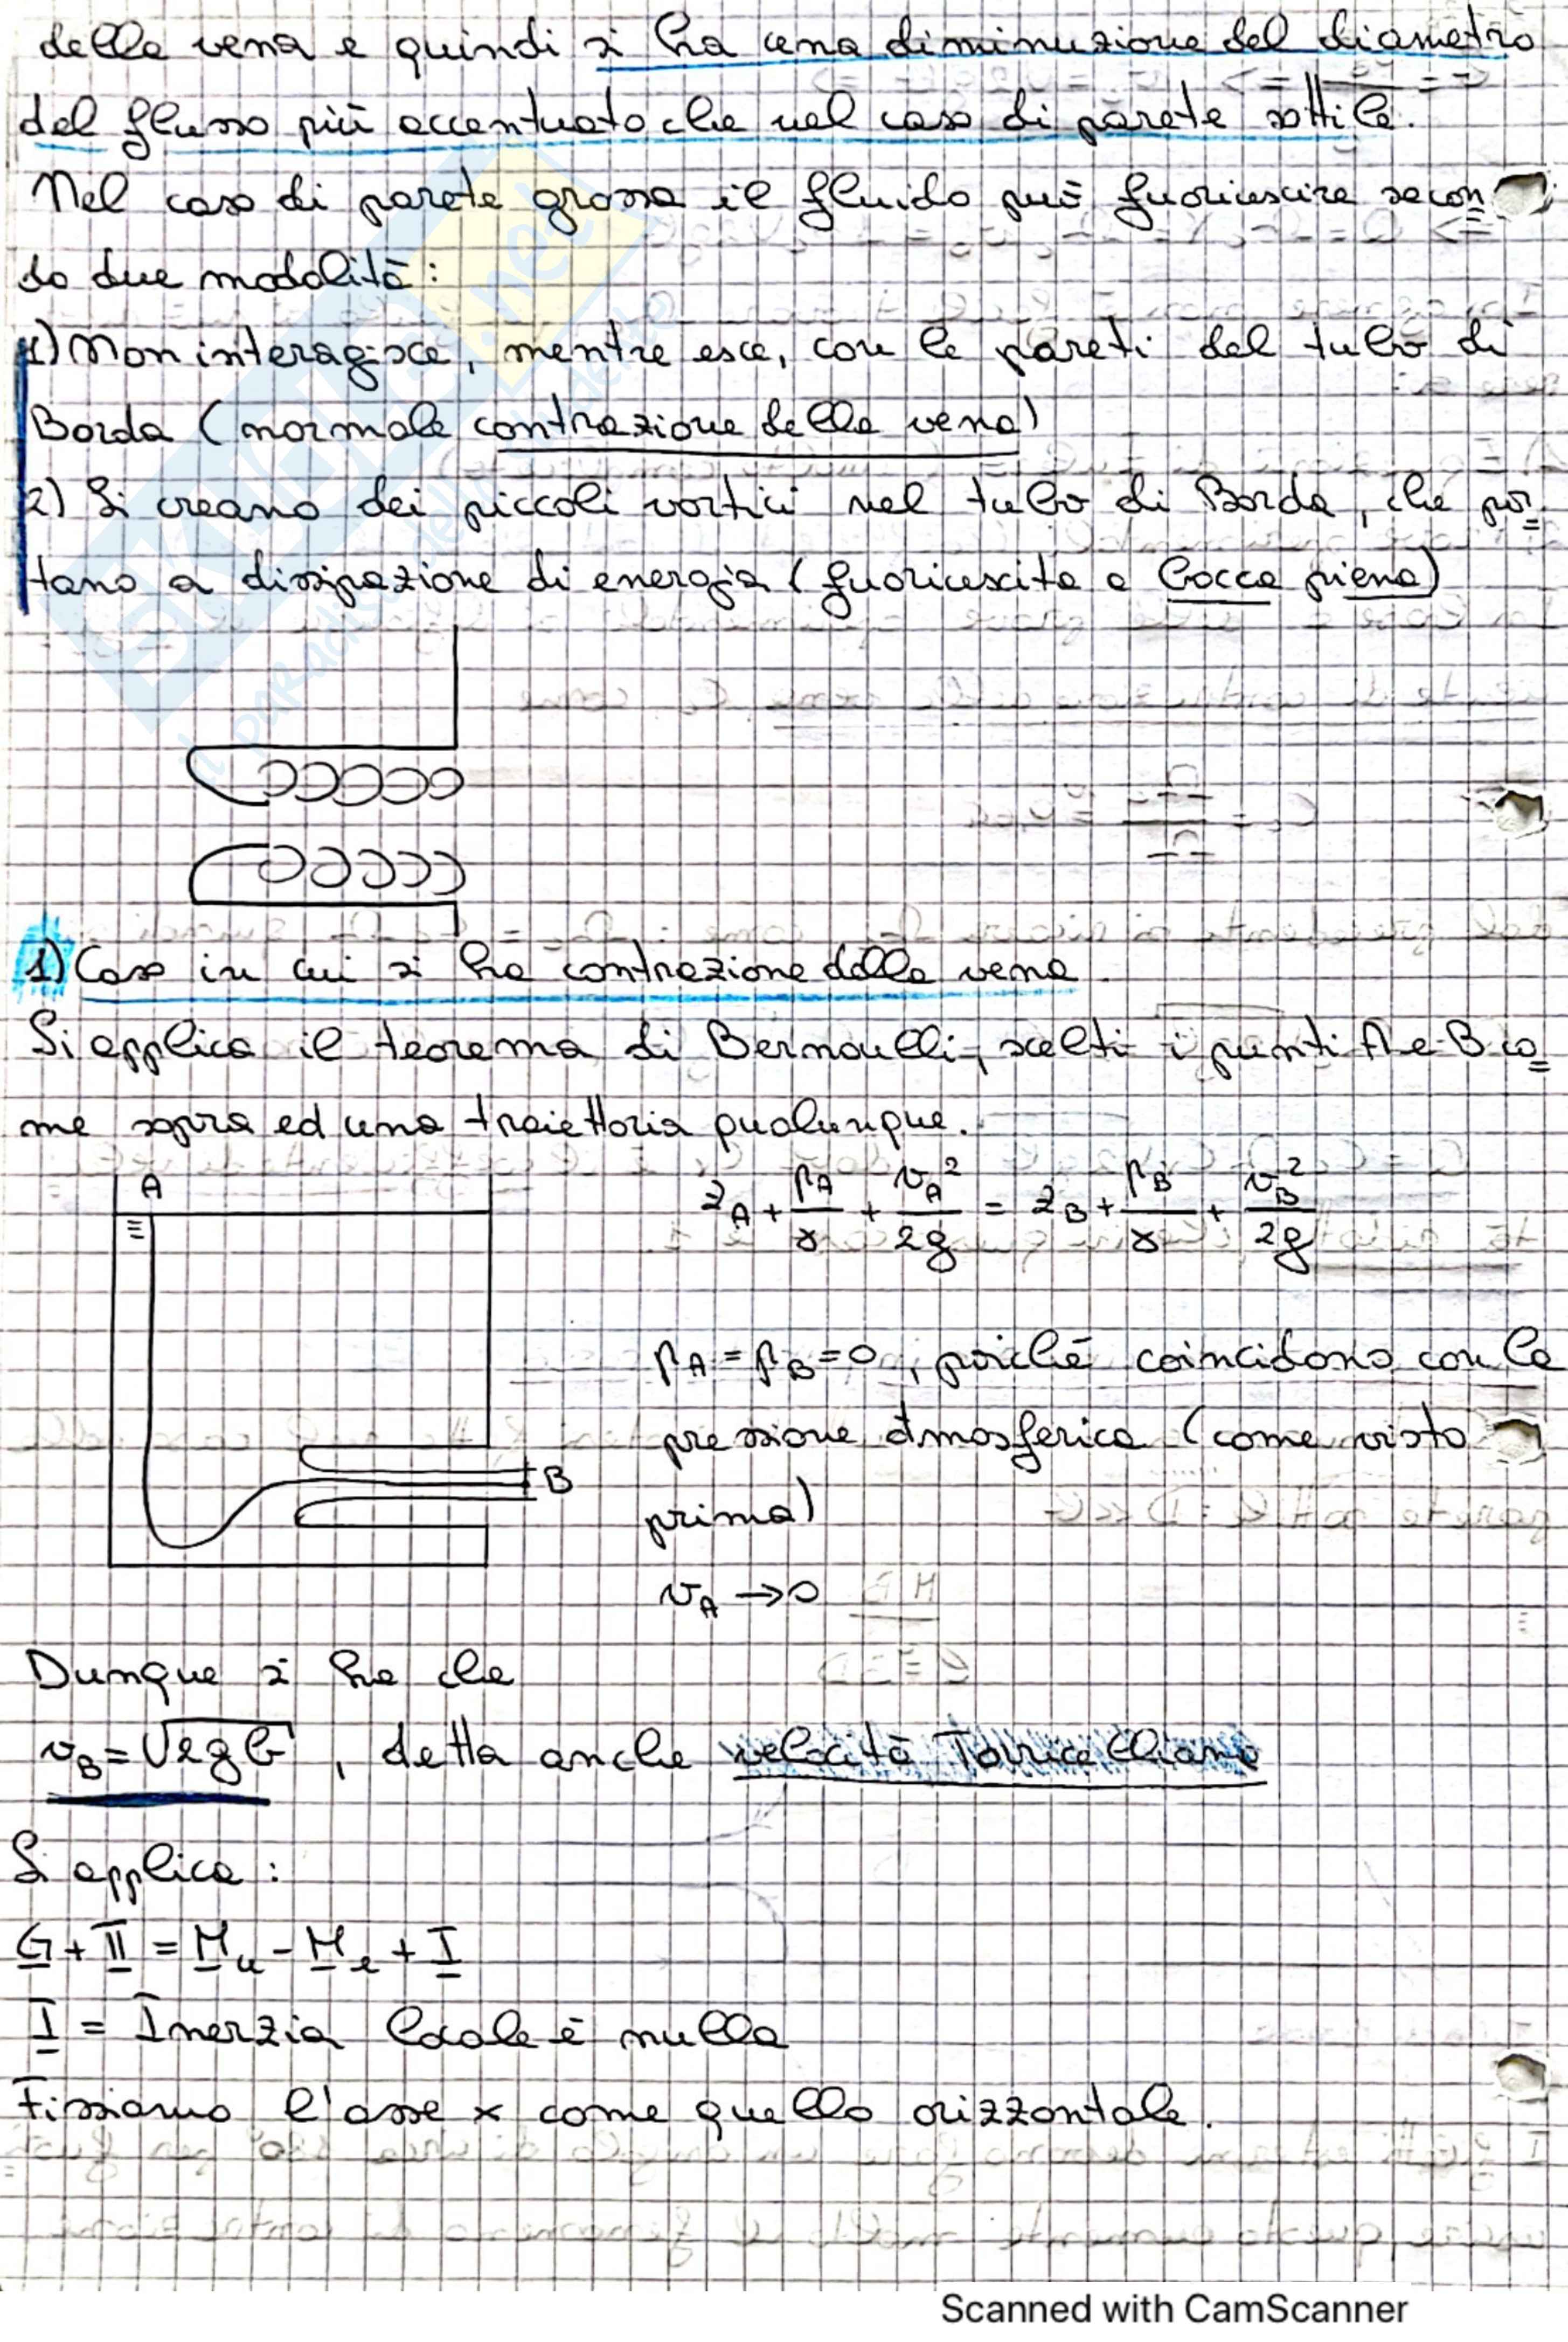 della vena e quindi si ha una diminuzione del diametro
del flusso più accentuato che nel caso di parete sottile.
Nel caso di parete grossa il fluido può fuoriuscire secon
do due modalità:
1) Non interagisce, mentre esce, con le pareti del tubo di
Borda (normale contrazione della vena)
2) Si creano dei piccoli vortici nel tubo di Borda, che por
tano a dissipazione di energia (fuoriuscita a bocca piena)
1) Caso in cui si ha contrazione della vena.
Si applica il teorema di Bernoulli, scelti i punti A e B co
me sopra ed una traiettoria qualunque.
A
z_A + p_A/γ + v_A²/2g = z_B + p_B/γ + v_B²/2g
p_A = p_B = 0, poiché coincidono con la
pressione atmosferica (come visto
B
prima)
v_A → 0
Dunque si ha che
v_B = √2gh, detta anche velocità Torricelliana
Si applica:
G + Π = M_u - M_e + I
I = Inerzia locale è nulla
Fissiamo l'asse x come quello orizzontale.
SKUOLA.net
il paradiso dello
Scanned with CamScanner